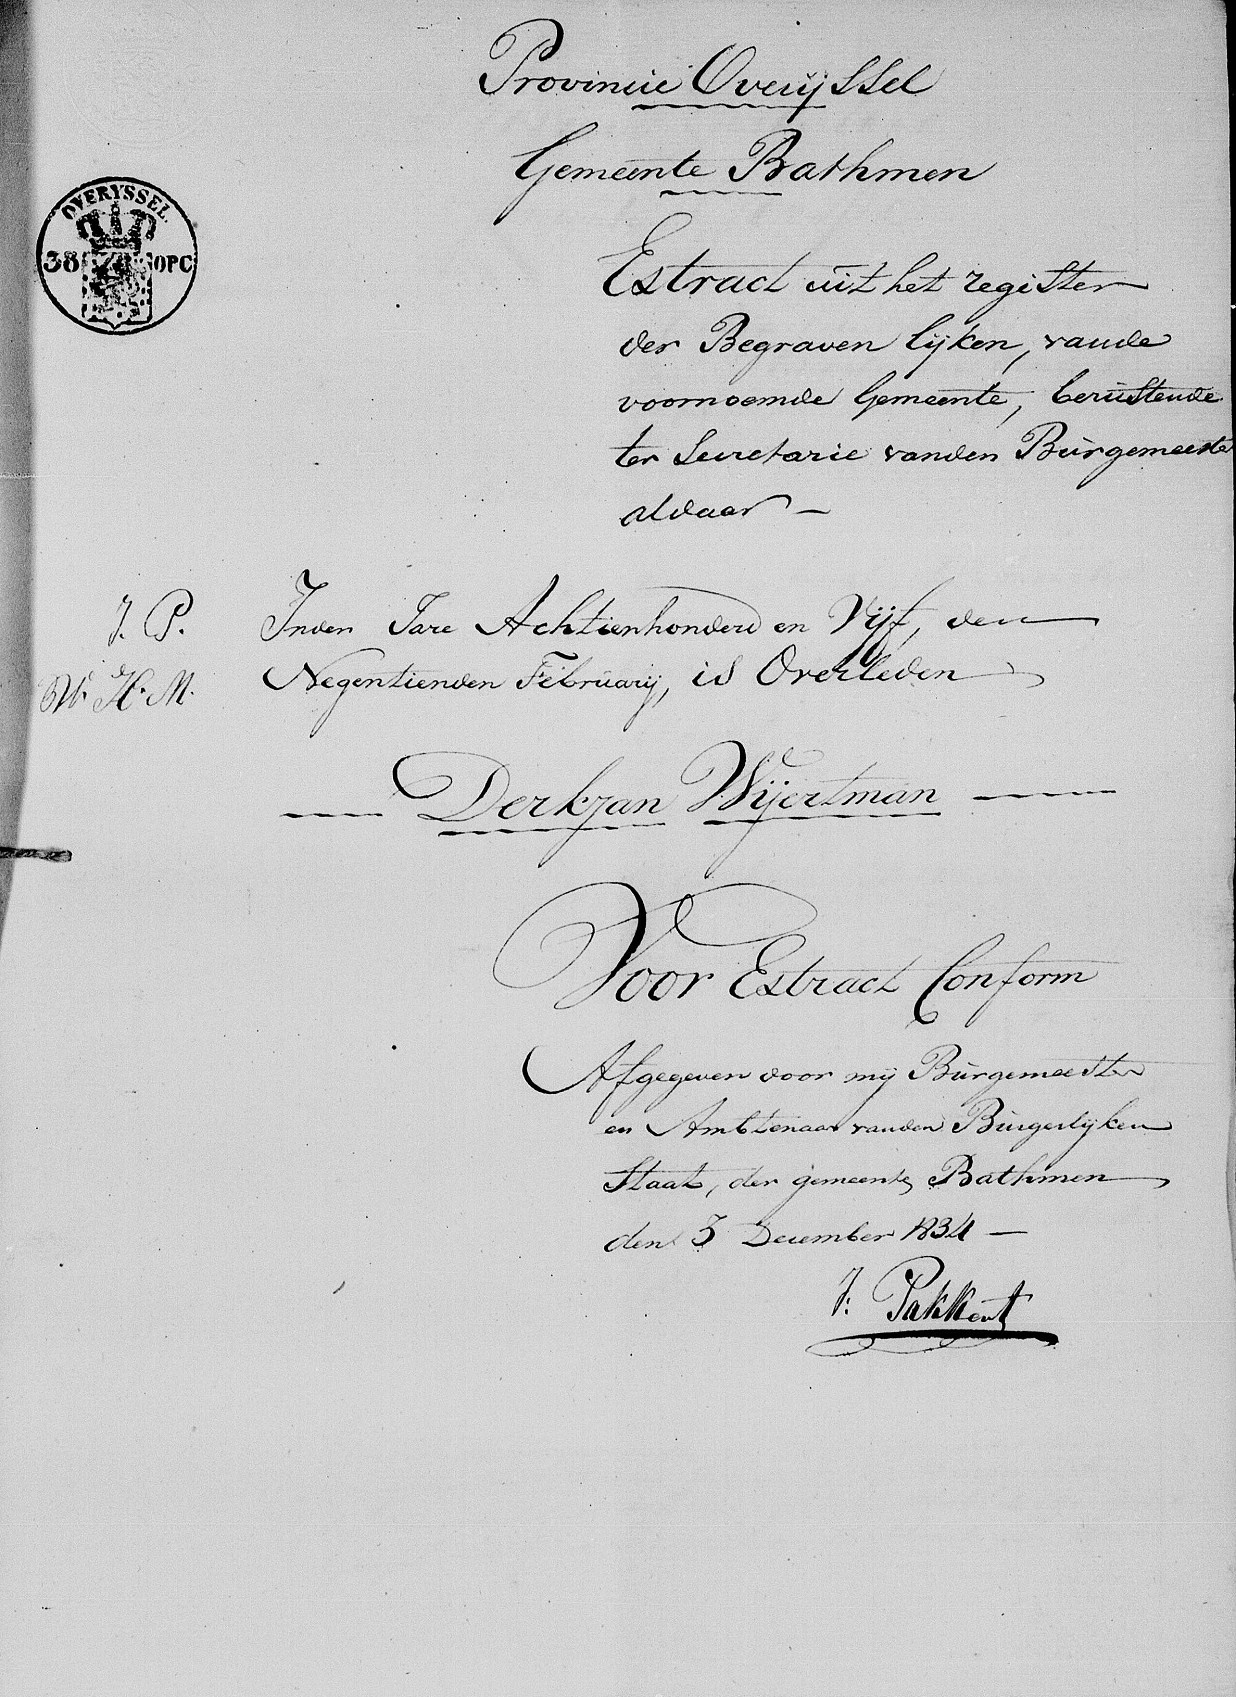 Provincie Overijssel
Gemeente Bathmen
OVERYSSEL.
38 OPC
Extract uit het register
der Begraven lijken, vande
voornoemde Gemeente, berustende
ter Secretarie vanden Burgemeester
aldaar —
J. P.
Inden Jare Achtienhonderd en Vijf, den
H. M.
Negentienden February, is Overleden
Derkjan Wijertman
Voor Extract Conform
Afgegeven door mij Burgemeester
en Ambtenaar vanden Burgerlijken
Staat, der gemeente Bathmen
den 3 December 1834 —
J: Pakkert